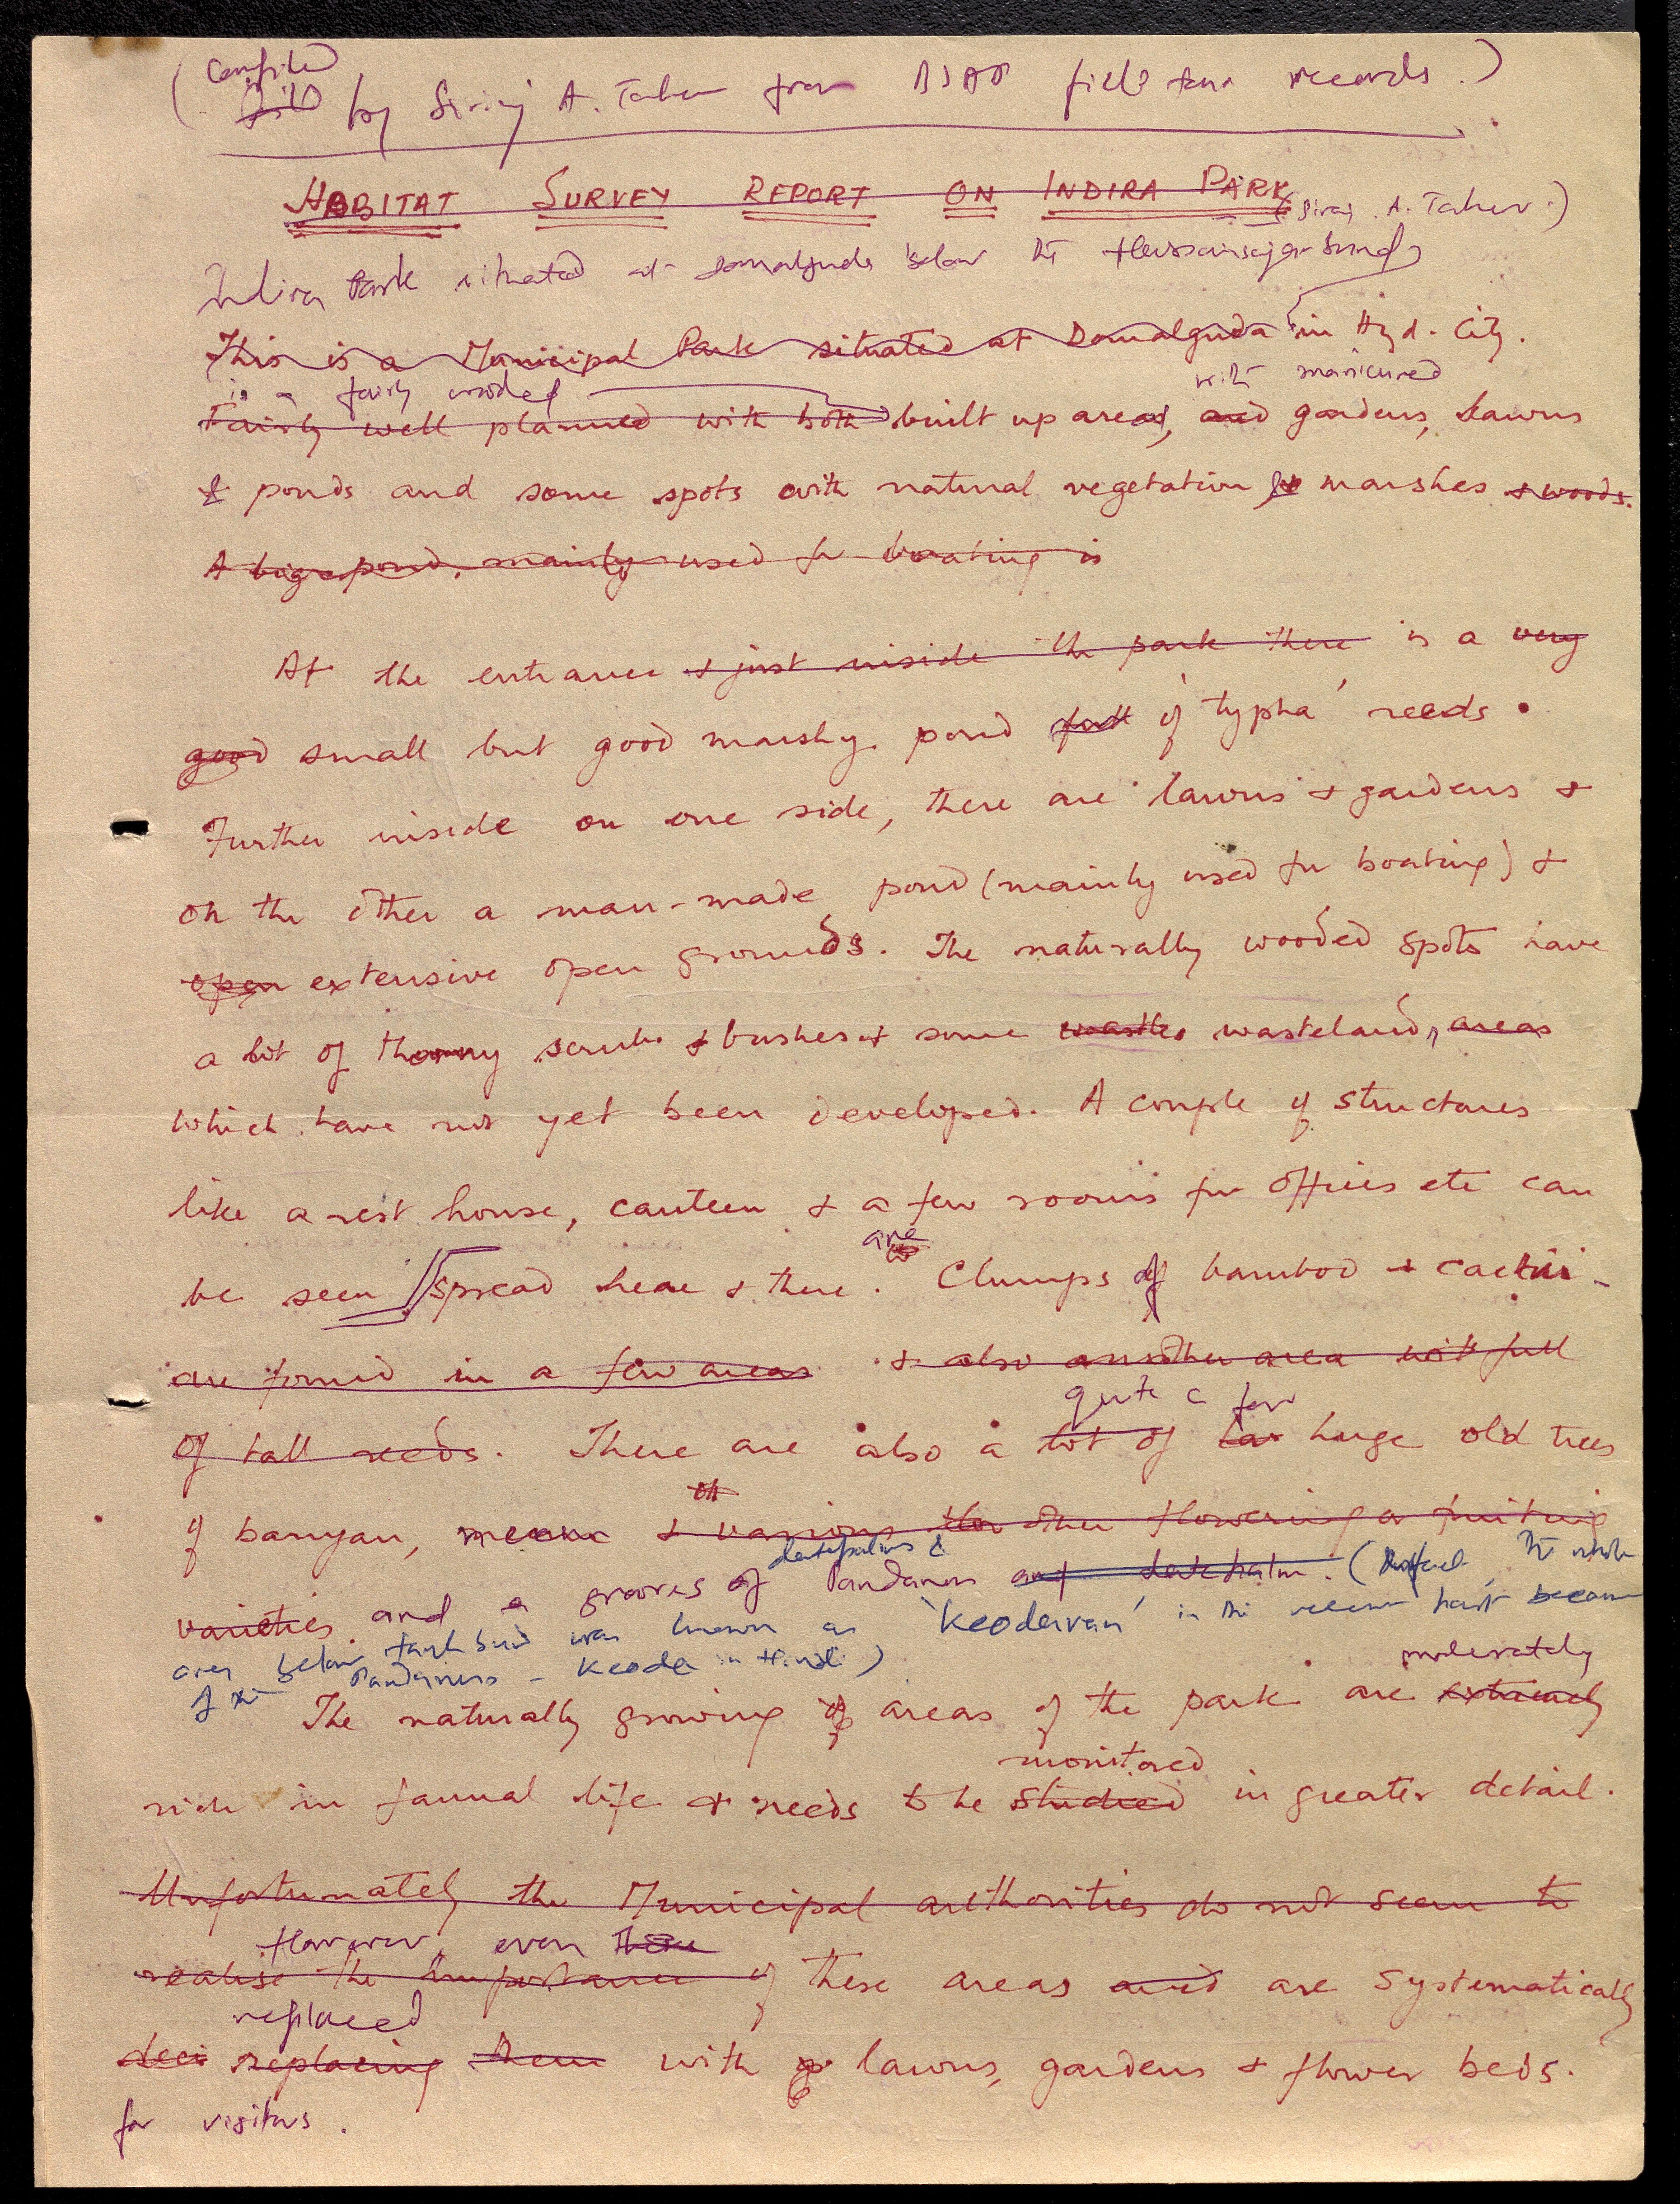 ( Compiled
by Siraj A. Taher from BSAP field trip records. )
HABITAT SURVEY REPORT ON INDIRA PARK
(Siraj A. Taher.)
Indira Park situated at Domalguda below the Hussainsagar bund,
This is a Municipal Park situated at Domalguda in Hyd. City.
is a fairly wooded with manicured
Fairly well planned with both built up areas, and gardens, lawns
& ponds and some spots with natural vegetation & marshes & woods.
A big pond, mainly used for boating is
At the entrance & just inside the park there is a very
good small but good marshy pond full of 'typha' reeds.
Further inside on one side, there are lawns & gardens &
on the other a man-made pond (mainly used for boating) &
open extensive open grounds. The naturally wooded spots have
a bit of thorny scrubs & bushes & some waste wasteland, areas
which have not yet been developed. A couple of structures
like a rest house, canteen & a few rooms for offices etc can
are
be seen spread here & there. Clumps of bamboo & cactii -
are found in a few areas & also another area with full
quite a few
of tall reeds. There are also a lot of huge old trees
of banyan, neem & various other flowering or fruiting
datepalms &
varieties and a grooves of Pandanus and date palm. (In fact the whole
area below tank bund was known as 'Keodavan' in the recent past because
of the Pandanus - Keoda in Hindi)
moderately
The naturally growing areas of the park are extremely
monitored
rich in faunal life & needs to be studied in greater detail.
Unfortunately the Municipal authorities do not seem to
However, even these
realise the importance of these areas and are systematically
replaced
deci replacing them with lawns, gardens & flower beds.
for visitors.